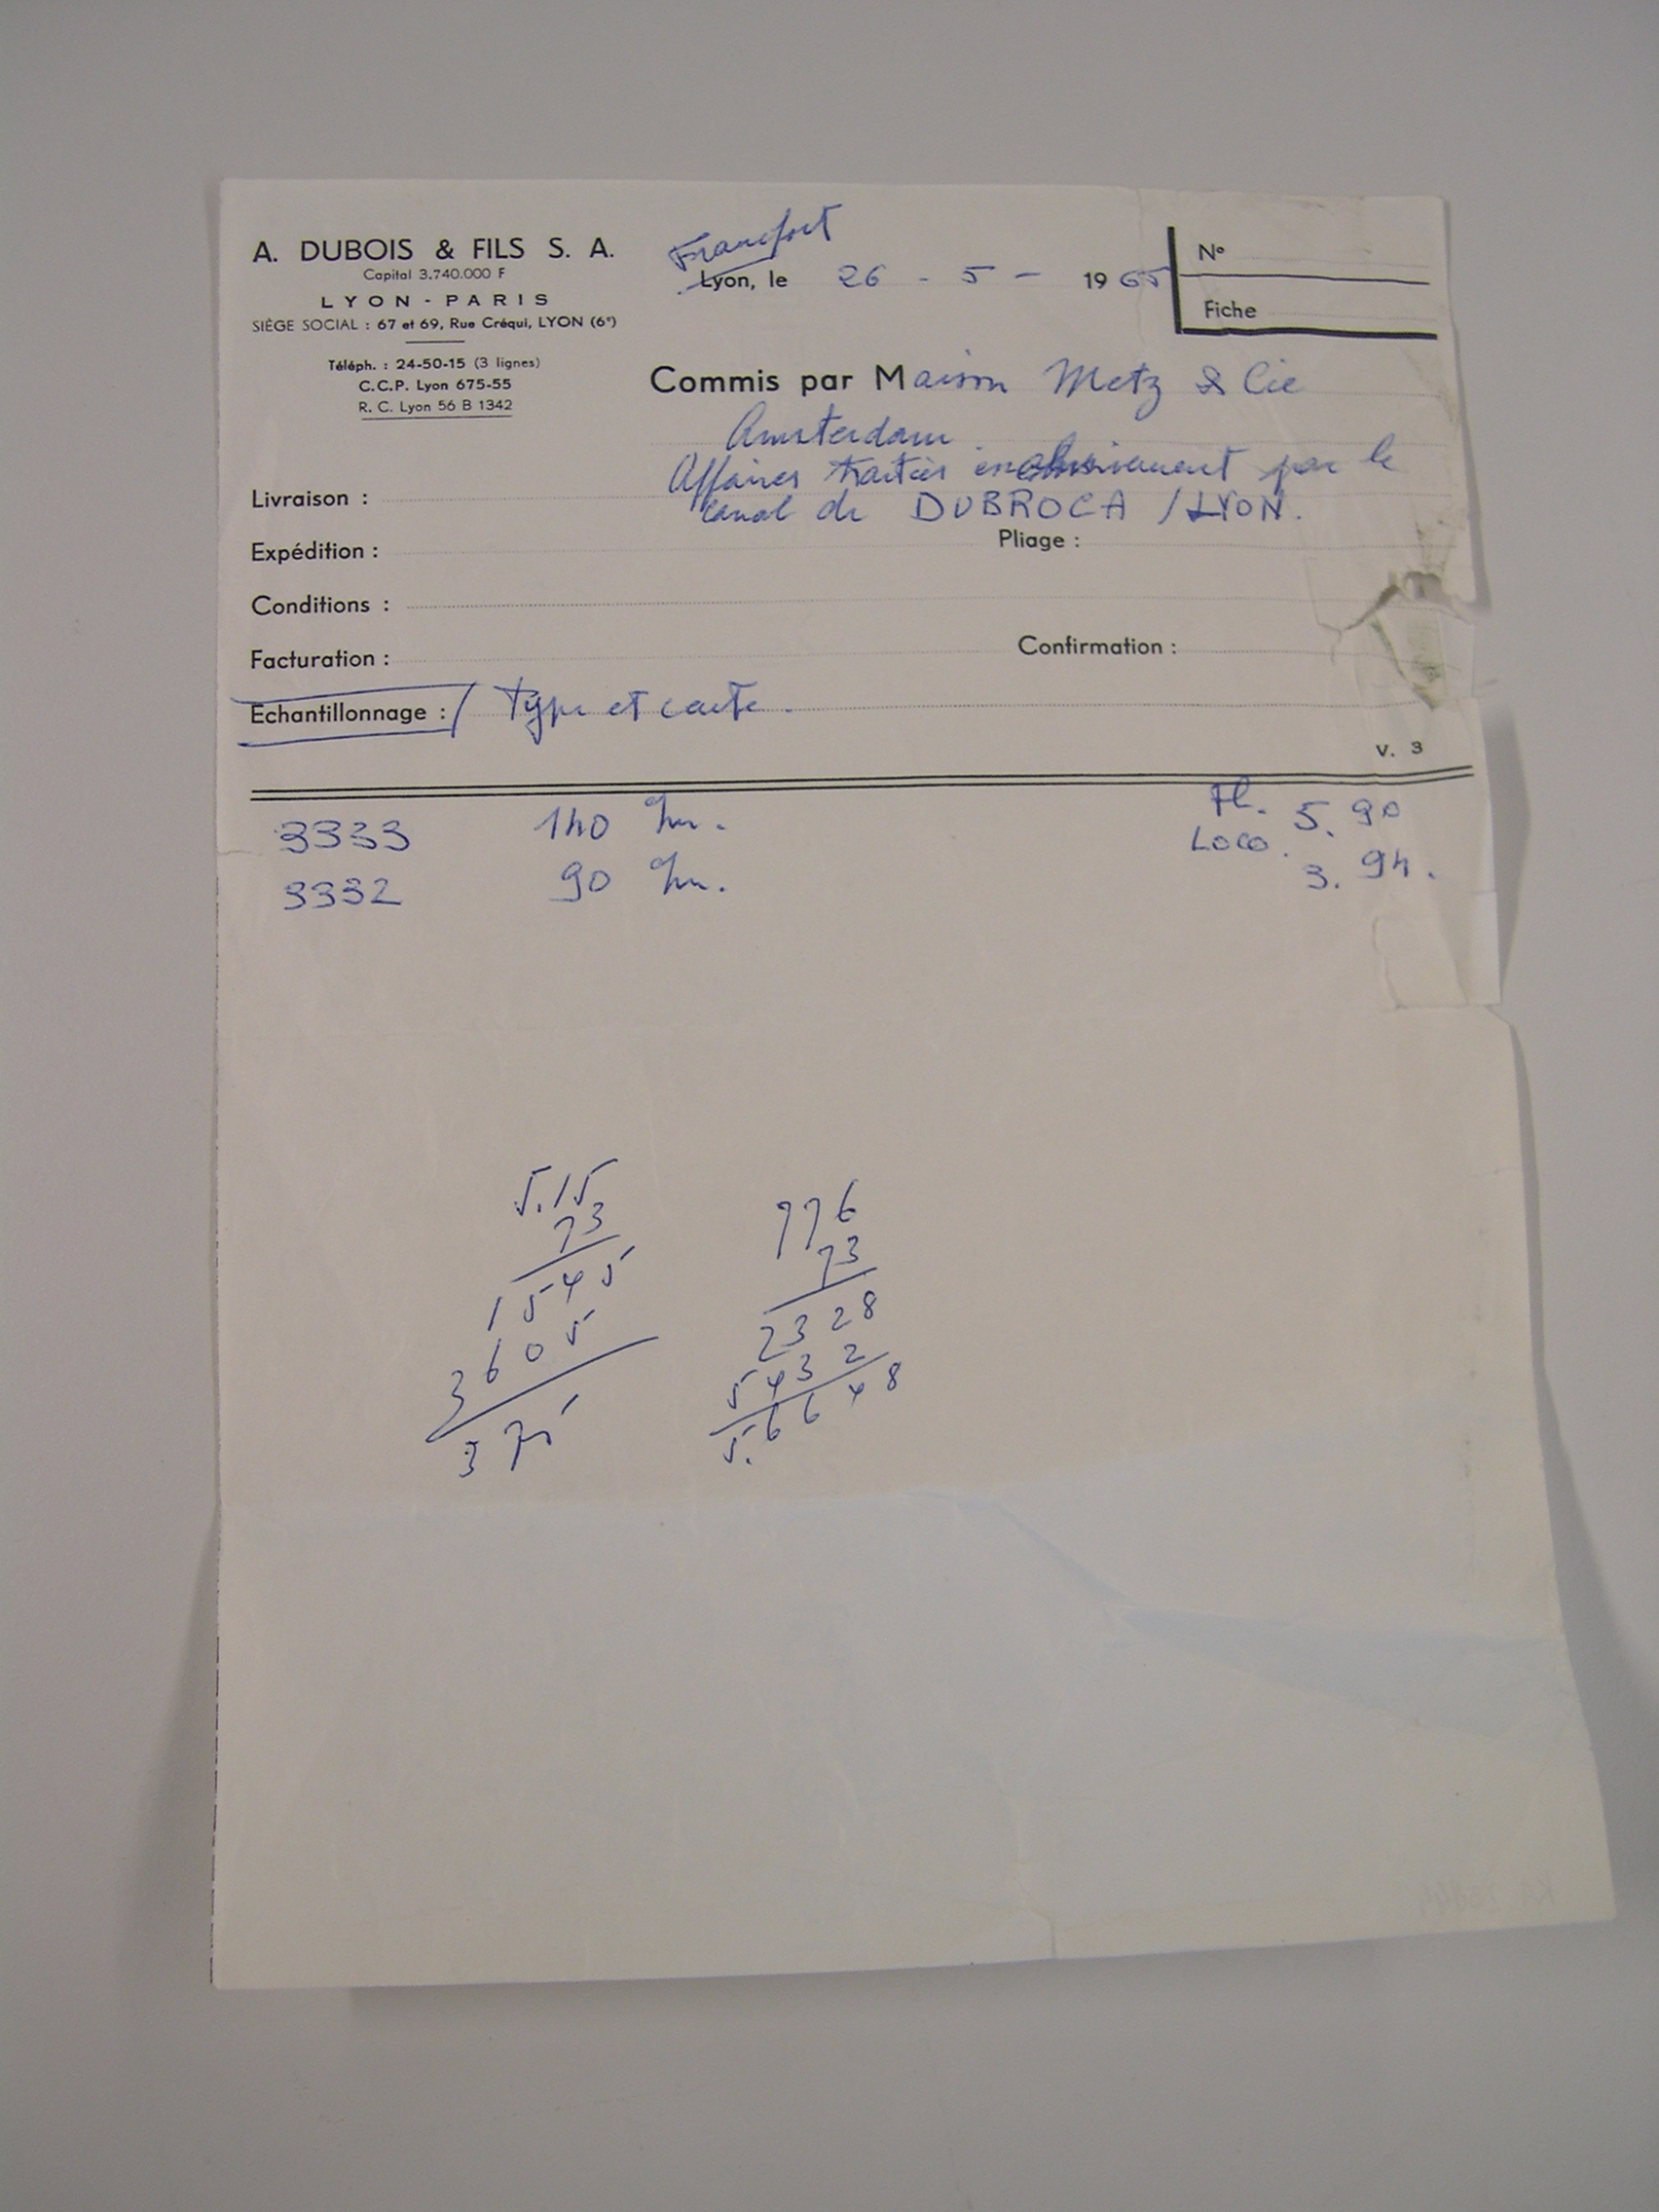 A. DUBOIS & FILS S. A.
Capital 3.740.000 F
LYON - PARIS
SIÈGE SOCIAL : 67 et 69, Rue Créqui, LYON (6e)
Téléph. : 24-50-15 (3 lignes)
C.C.P. Lyon 675-55
R. C. Lyon 56 B 1342
Francfort
Lyon, le 26 - 5 - 1965
No
Fiche
Commis par Maison Metz & Cie
Amsterdam
Affaires traitées exclusivement par le
canal de DUBROCA / LYON.
Livraison :
Expédition :
Pliage :
Conditions :
Facturation :
Confirmation :
Echantillonnage : / Type et carte.
V. 3
3333 140 Fl. 5.90
Loco.
3332 90 3.94.
5.15
73
1545
3605
375
776
73
2328
5432
5.6648